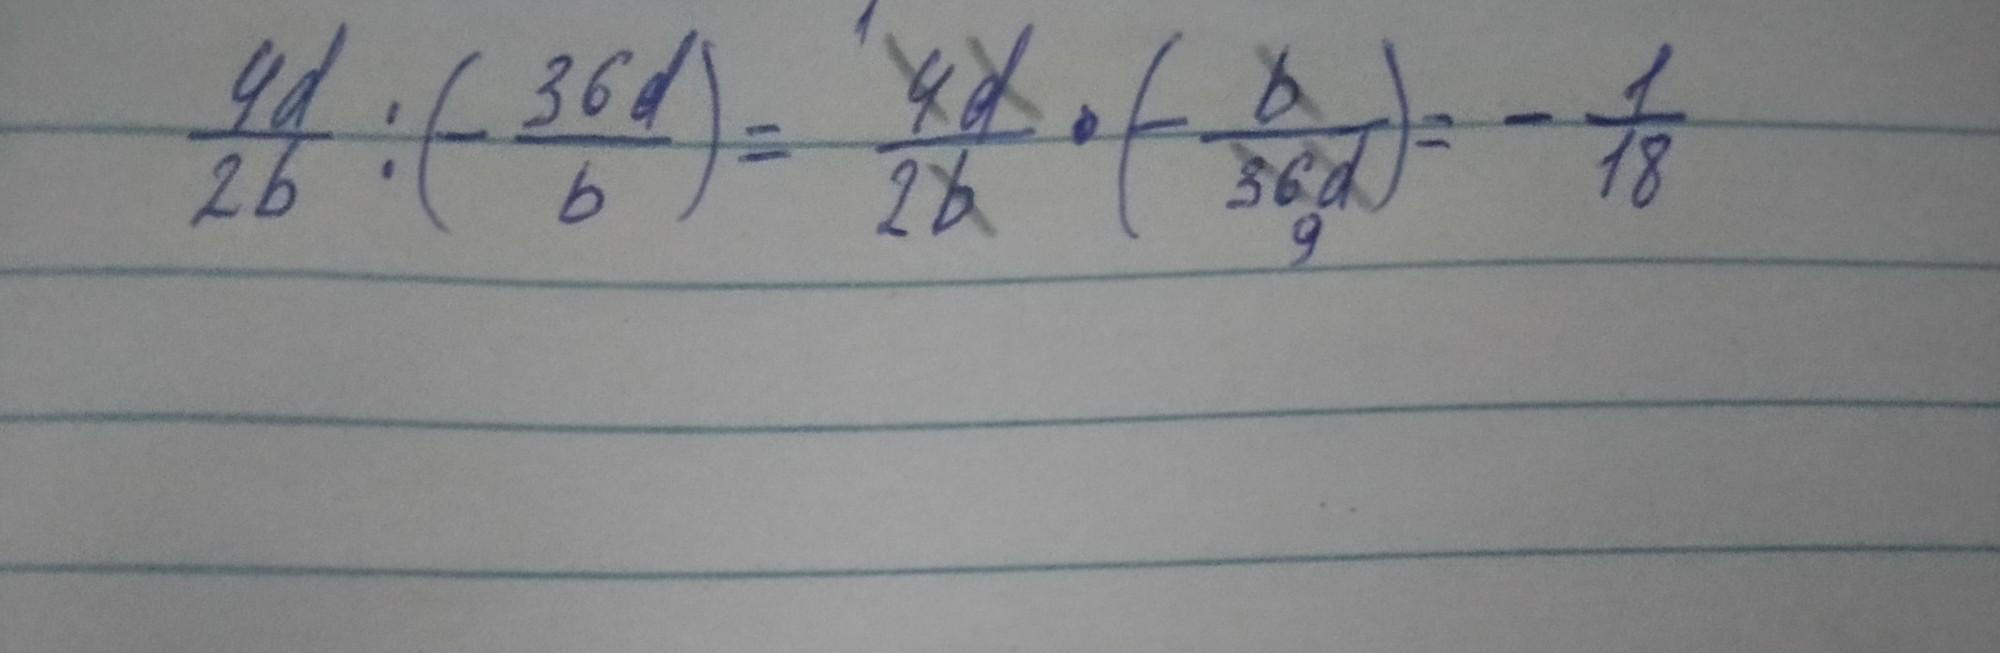 4d/2b : (- 36d/b) = ¹4d/2b · (- b/36d 9) = - 1/18